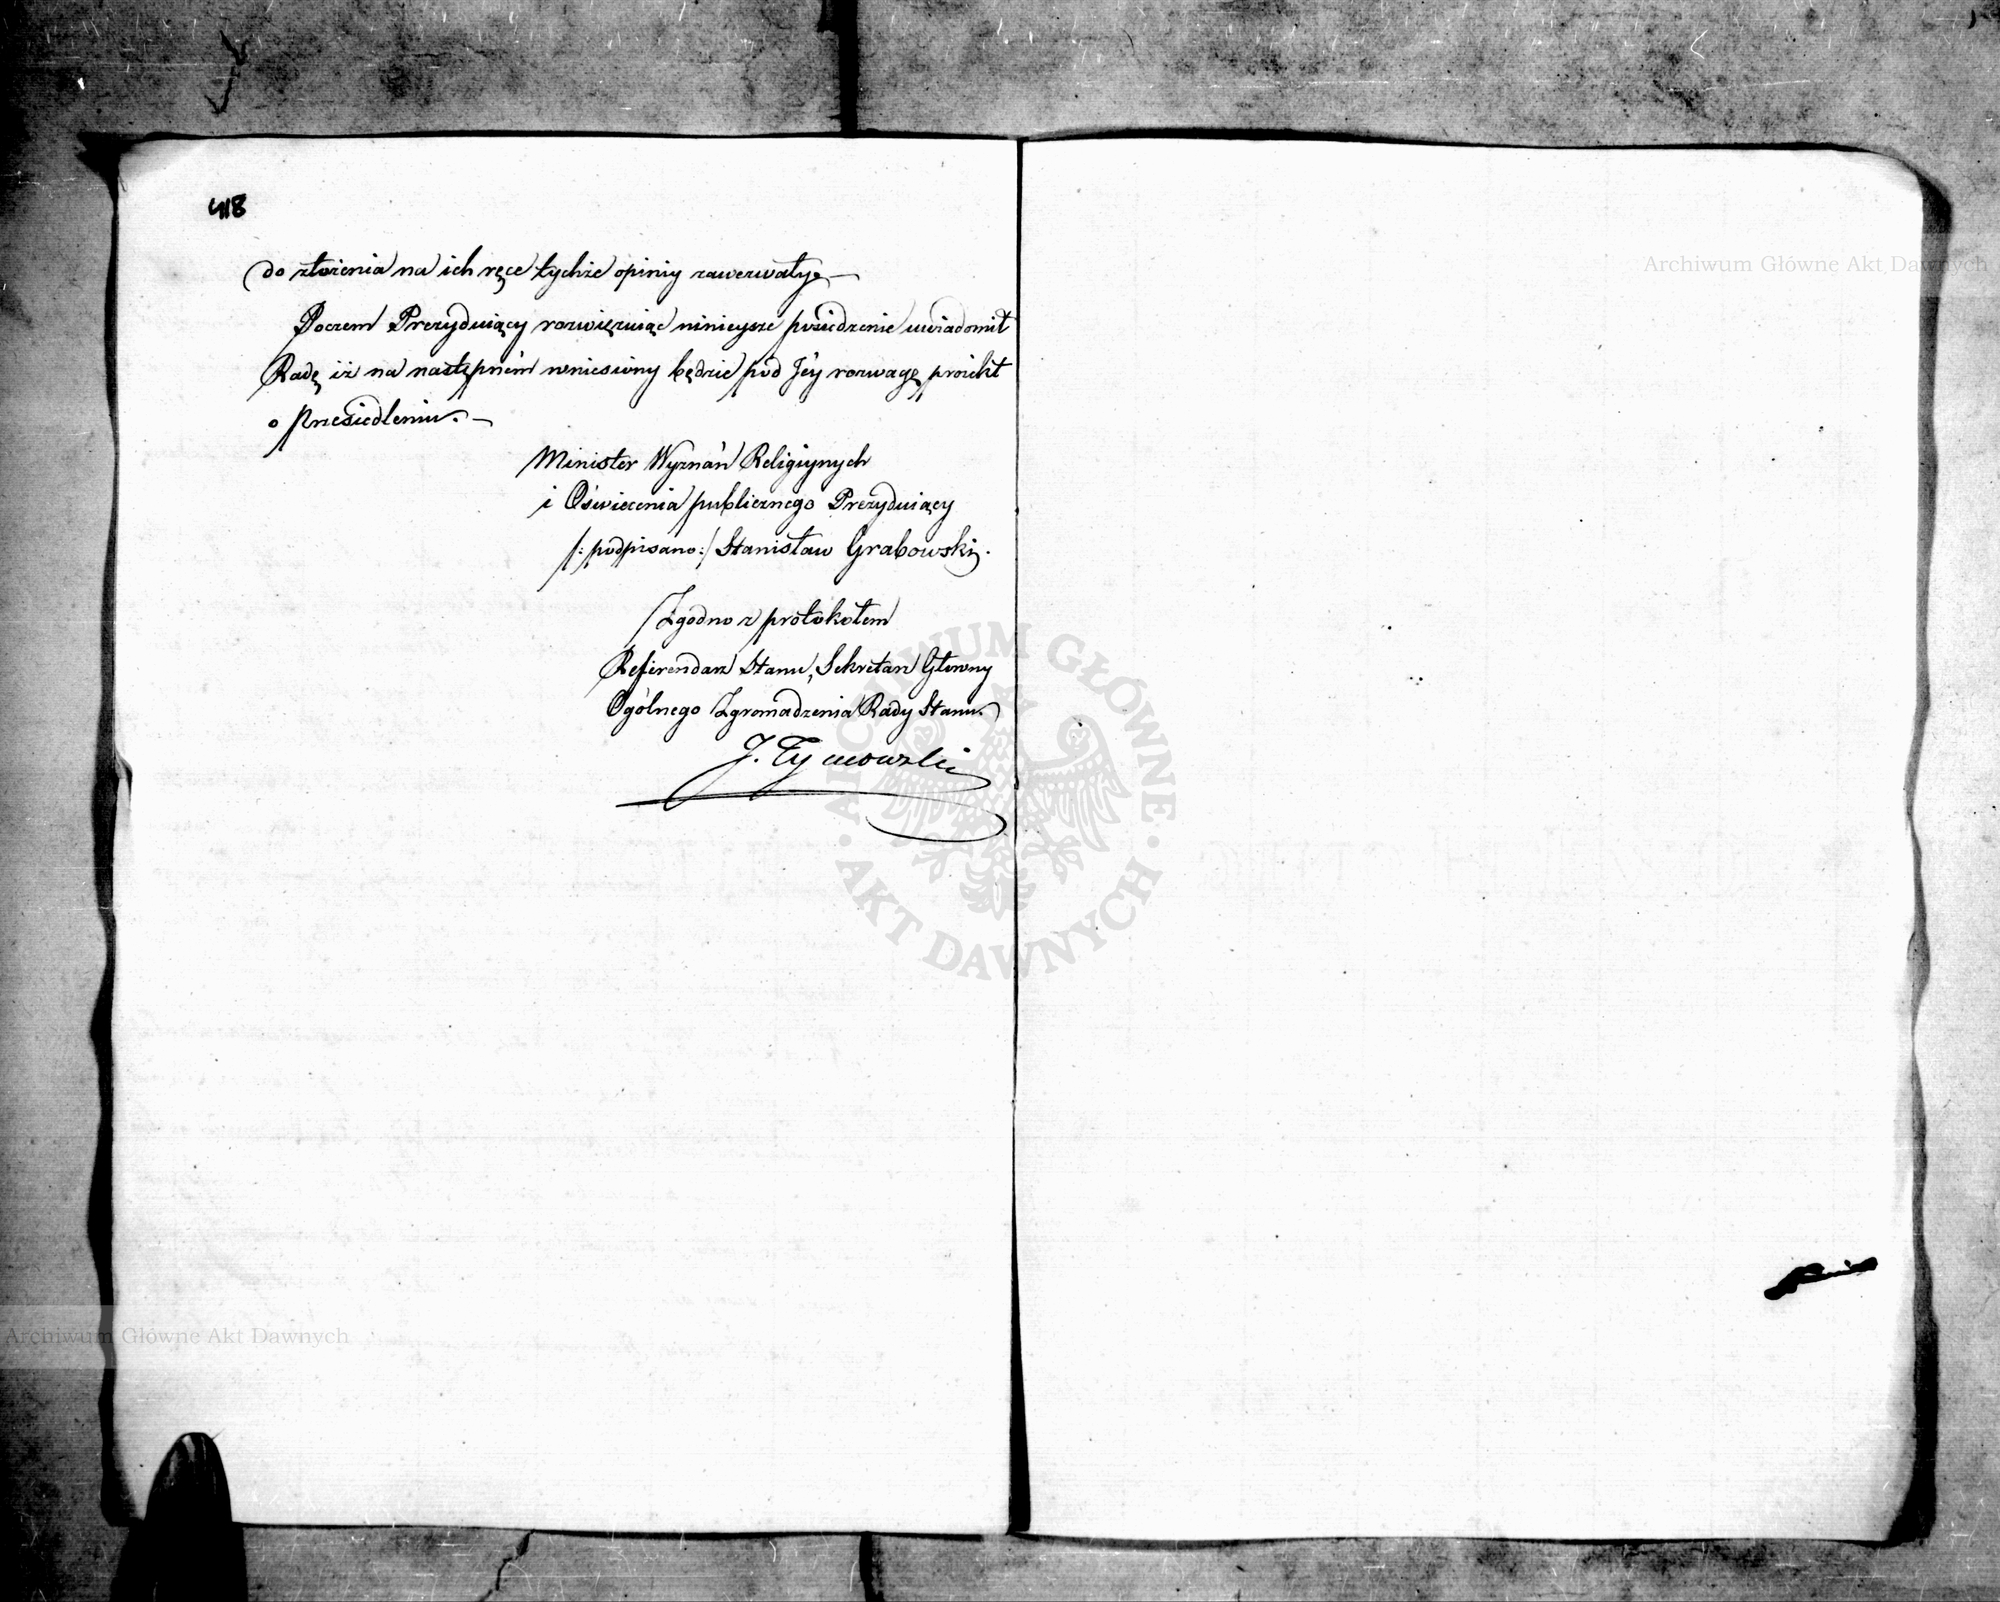 418
do złożenia na ich ręce tychże opiniy zawezwały.—
Poczem Prezyduiący rozwięzuiąc ninieysze posiedzenie uwiadomił
Radę iż na następném wniesiony będzie pod Jéy rozwagę proiekt
o przesiedleniu.—
Minister Wyznań Religiynych
i Oświecenia publicznego Prezyduiący
/:podpisano:/ Stanisław Grabowski.
Zgodno z protokołem
Referendarz Stanu, Sekretarz Głowny
Ogólnego Zgromadzenia Rady Stanu
J. Tymowski
Archiwum Główne Akt Dawnych
ARCHIWUM GŁÓWNE · AKT DAWNYCH ·
Archiwum Główne Akt Dawnych